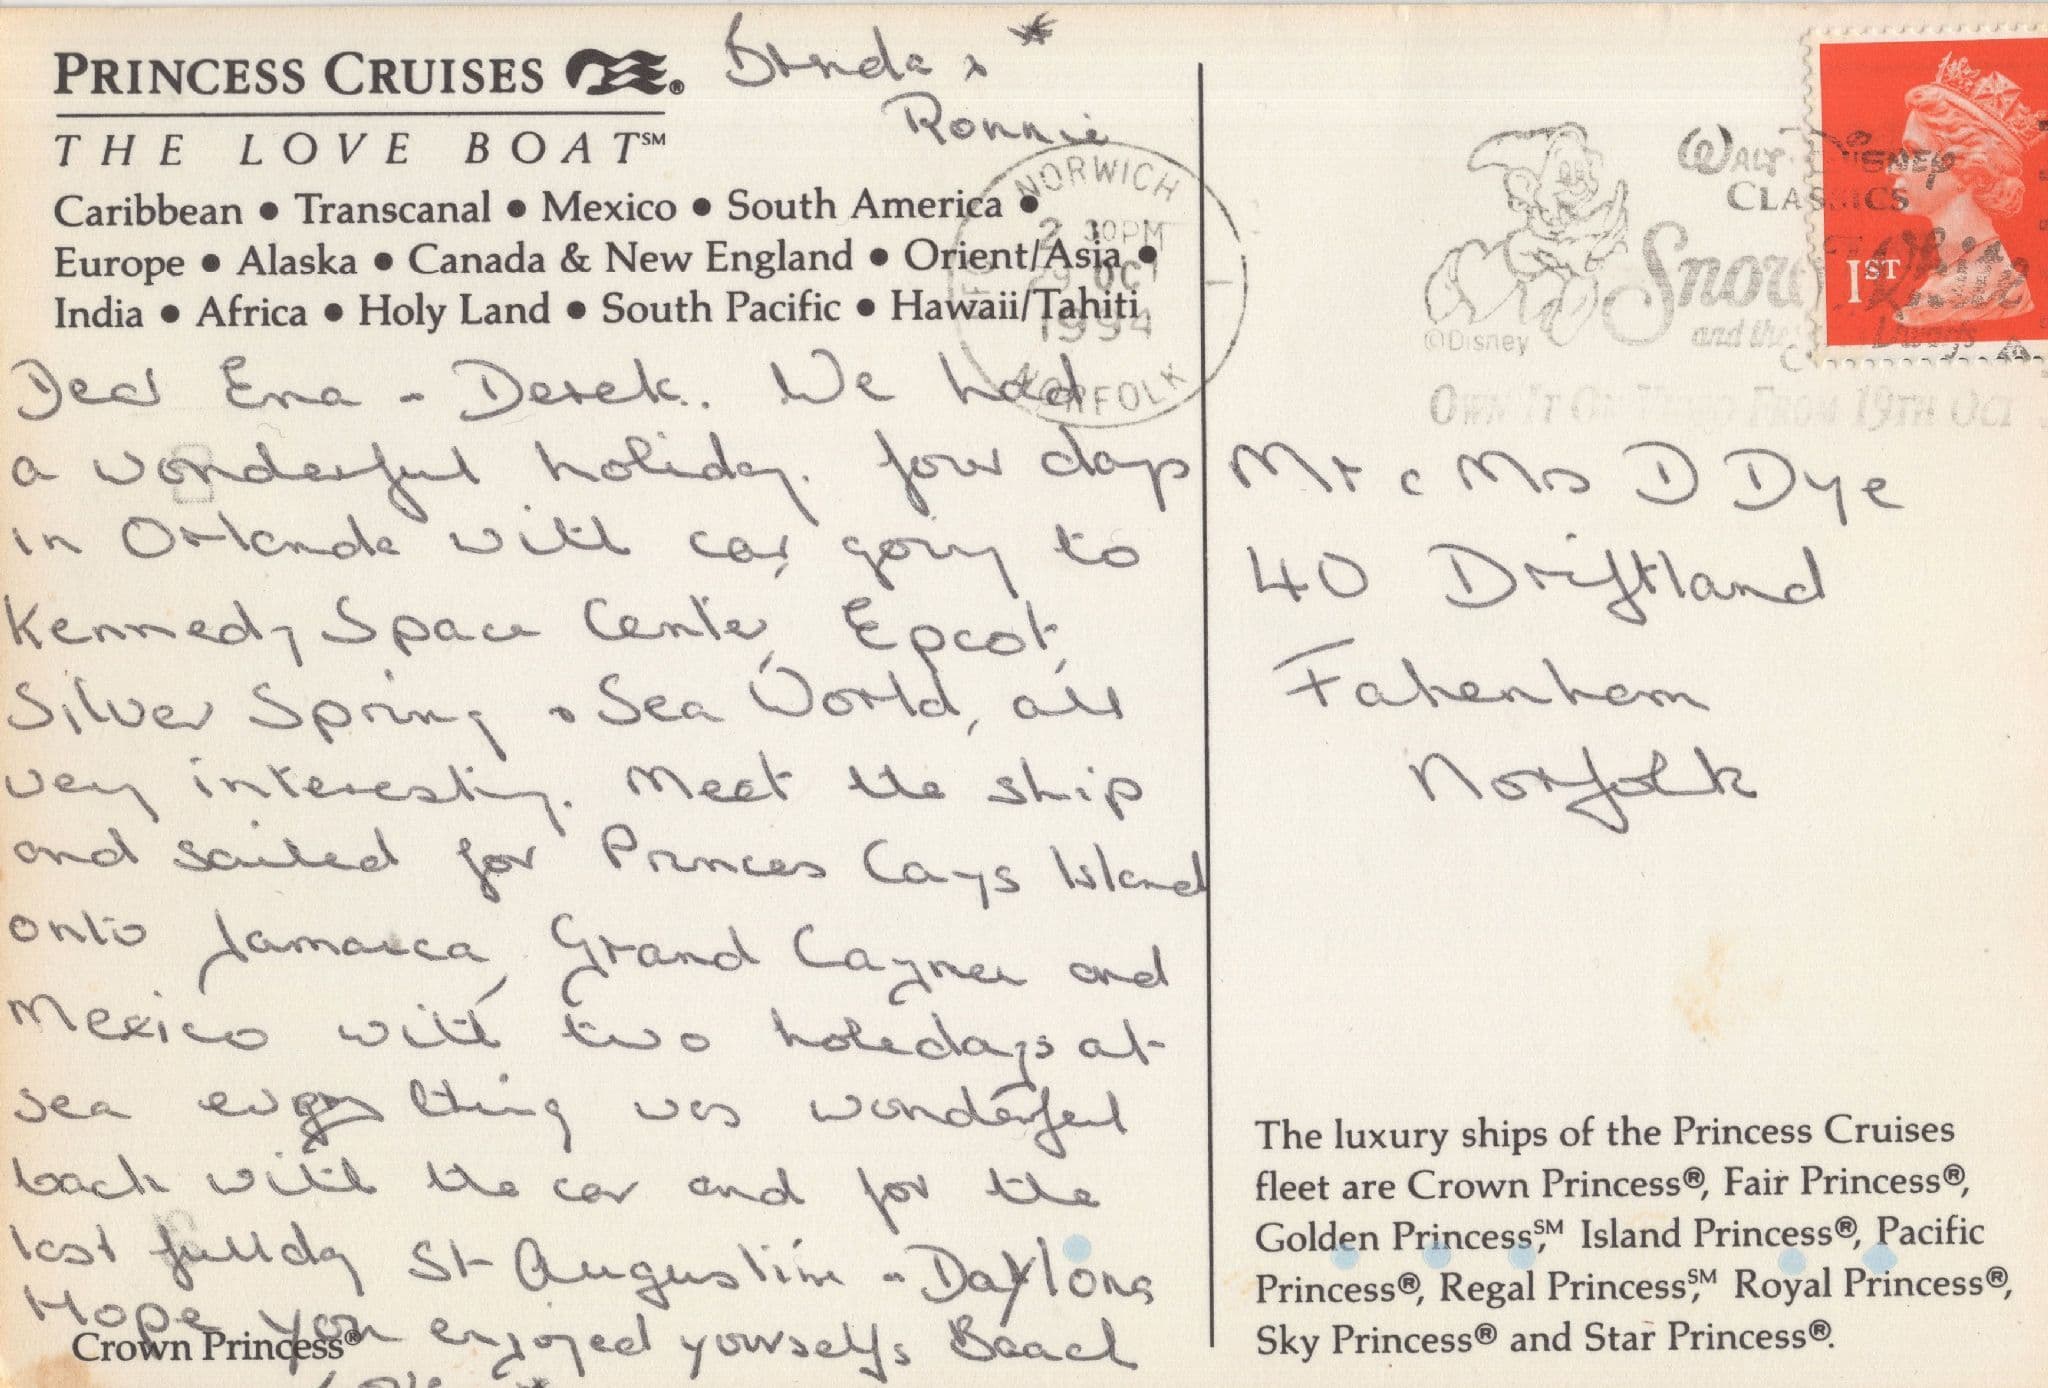 PRINCESS CRUISES ®
THE LOVE BOAT℠
Caribbean • Transcanal • Mexico • South America •
Europe • Alaska • Canada & New England • Orient/Asia •
India • Africa • Holy Land • South Pacific • Hawaii/Tahiti
Brenda *
Ronnie
Dear Ena - Derek. We had
a wonderful holiday. four days
in Orlando with car, going to
Kennedy Space Center, Epcot,
Silver Spring & Sea World, all
very interesting. Meet the ship
and sailed for Princes Cays Island
onto Jamaica, Grand Cayman and
Mexico with two holedays at
sea every thing was wonderful
back with the car and for the
last fullday St Augustine - Daytona
Hope you enjoyed yourselfs Beach
Love *
Crown Princess®
NORWICH
2 30PM
29 OCT
1994
NORFOLK
WALT DISNEY
CLASSICS
Snow White
and the Dwarfs
©Disney
OWN IT ON VIDEO FROM 19TH OCT
1ST
Mr & Mrs D Dye
40 Driftland
Fakenham
Norfolk
The luxury ships of the Princess Cruises
fleet are Crown Princess®, Fair Princess®,
Golden Princess,℠ Island Princess®, Pacific
Princess®, Regal Princess,℠ Royal Princess®,
Sky Princess® and Star Princess®.